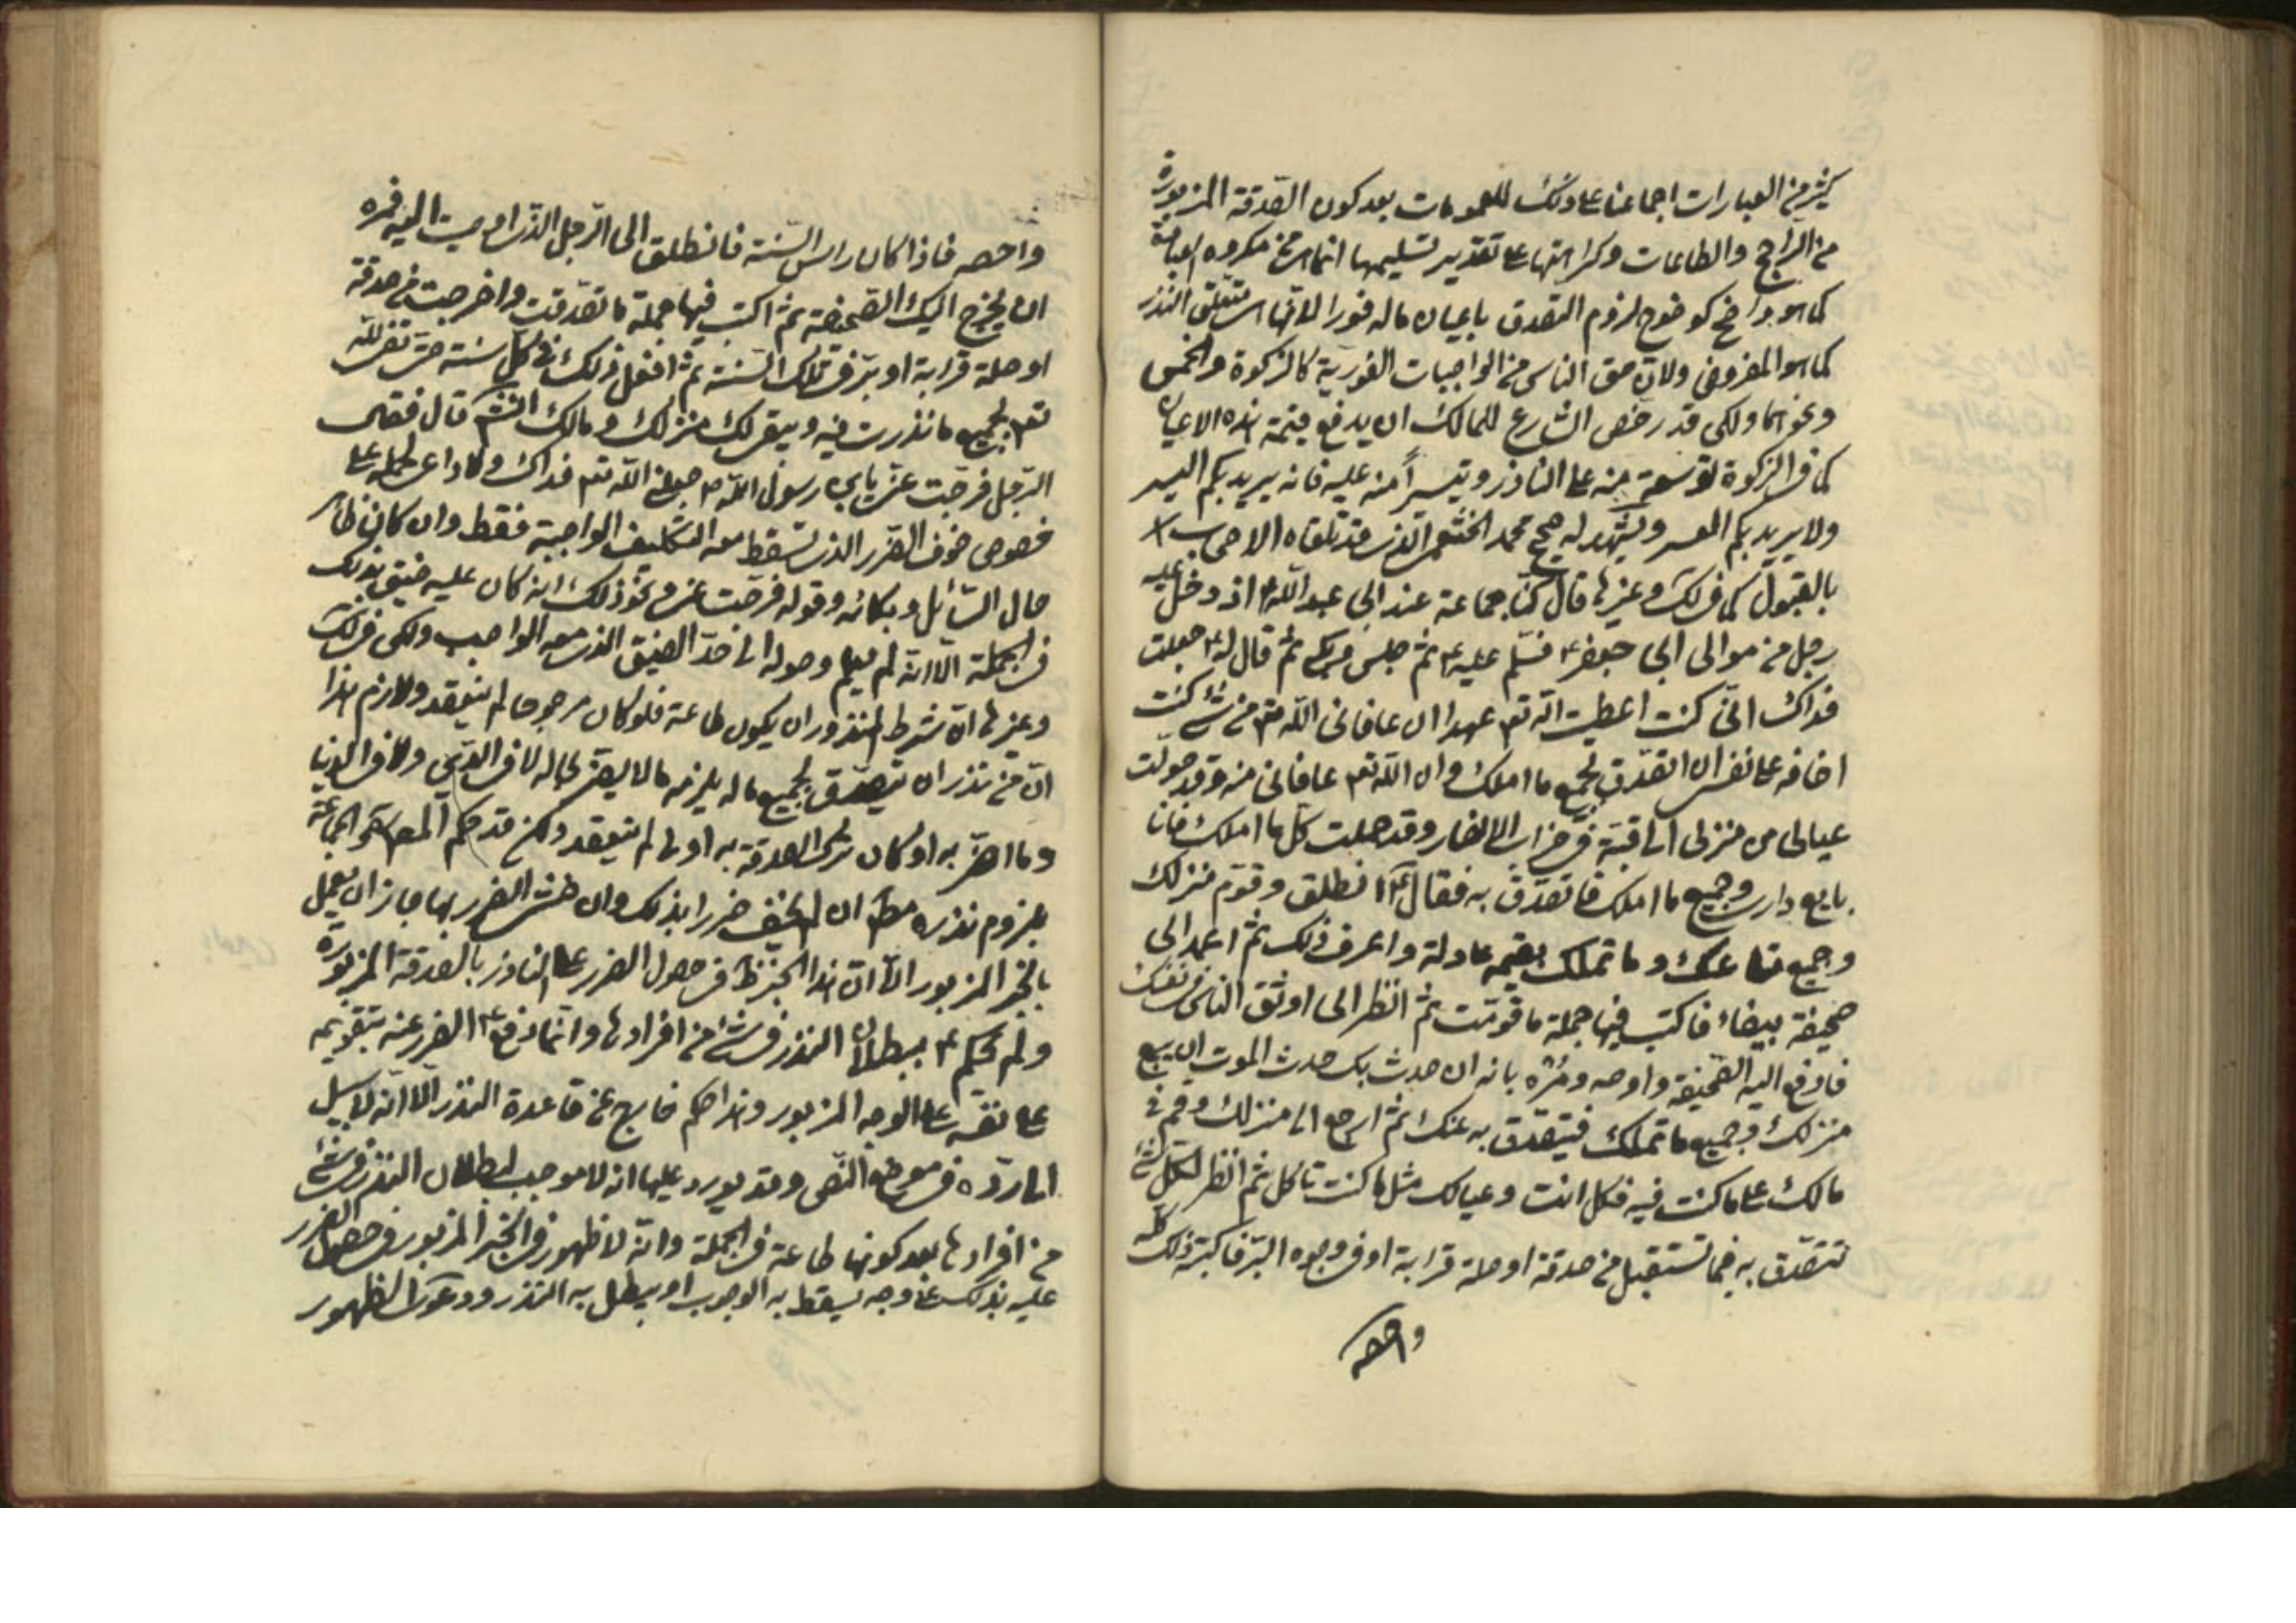 كثير من العبارات اجماعنا على ذلك للعمومات بعد كون الصدقة المزبورة
من الراجح والطاعات وكراهتها على تقدير تسليمها انما هي من مكروه العبادة
كما هو واضح كوضوح لزوم التصدق باعيان ماله فورا لانها متعلق النذر
كما هو المفروض ولان حق الناس من الواجبات الفورية كالزكوة والخمس
ونحوهما ولكن قد رخص الشارع للمالك ان يدفع قيمة هذه الاعيان
كما في الزكوة توسعة منه على الناذر وتيسيراً منه عليه فانه يريد بكم اليسر
ولا يريد بكم العسر ويشهد له صحيح محمد الخثعمي الذي قد تلقاه الاصحاب
بالقبول كما في لك وغيرها قال كنّا جماعة عند ابي عبد الله ع اذ دخل عليه
رجل من موالى ابي جعفر ع فسلم عليه ع ثم جلس وبكى ثم قال له ع جعلت
فداك انّى كنت اعطيت الله تع عهدا ان عافانى الله تع من شئ كنت
اخافه على نفسى ان اتصدّق بجميع ما املك وان الله تع عافانى منه وقد حولت
عيالى من منزلى الى قبّة فى خراب الانصار وقد حملت كل ما املك فانا
بايع دارى وجميع ما املك فاتصدّق به فقال ع انطلق وقوّم منزلك
وجميع متاعك وما تملك بقيمة عادلة واعرف ذلك ثم اعمد الى
صحيفة بيضاء فاكتب فيها جملة ما قوّمت ثم انظر الى اوثق الناس فى نفسك
فادفع اليه الصحيفة واوصه ومُره بانه ان حدث بك حدث الموت ان يبيع
منزلك وجميع ما تملك فيتصدّق به عنك ثم ارجع الى منزلك وقم فى
مالك على ما كنت فيه فكل انت وعيالك مثل ما كنت تاكل ثم انظر لكل شئ
تتصدّق به فيما تستقبل من صدقة او صلة قرابة او فى وجوه البرّ فاكتب ذلك كله
واحصه
واحصه فاذا كان راس السّنة فانطلق الى الرّجل الذى اوصيت اليه فمره
ان يخرج اليك الصّحيفة ثم اكتب فيها جملة ما تصدّقت واخرجت من صدقة
او صلة قرابة او برّ فى تلك السّنة ثم افعل ذلك فى كل سنة حتى تفى لله
تع بجميع ما نذرت فيه ويبقى لك منزلك ومالك انش قال فقال
الرّجل فرّجت عنّى يابن رسول الله ص جعلنى الله تع فداك
خصوص خوف الضرر الذى تسقط معه التكليف الواجبة فقط وان كان ظاهر
حال السّائل وبكائه وقوله فرّجت عنى ونحو ذلك انه كان عليه ضيق بذلك
فى الجملة الّا انه لم يعلم وصوله الى حدّ الضيق الذى معه الواجب ولكن فى لك
وغيرها انّ شرط المنذور ان يكون طاعة فلو كان مرجوحا لم ينعقد ولازم هذا
انّ من نذر ان يتصدّق بجميع ماله يلزمه ما لا يضر بحاله لا فى الدّين ولا فى الدنيا
وما اضرّ به او كان ترك الصدقة به اولى لم ينعقد ولكن قد حكم المص كـ الجماعة
بلزوم نذره مط ان لم يخف ضررا بذلك وان خشى الضرر بها جاز ان يعمل
بالخبر المزبور الّا انّ هذا الخبر ظ فى حصول الضرر على الناذر بالصدقة المزبورة
ولم يحكم ع ببطلان النذر فى شئ من افرادها وانّما دفع ع الضرر عنه بتقويمه
على نفسه على الوجه المزبور وهذا حكم خارج عن قاعدة النذر الّا انّه لا سبيل
الى ردّه فى موضع النّص وقد يورد عليها انه لا موجب لبطلان النذر فى شئ
من افرادها بعد كونها طاعة فى الجملة وانّه لا ظهور فى الخبر المزبور فى حصول الضرر
عليه بذلك على وجه يسقط به الوجوب او يبطل به النذر ودعوى الظهور